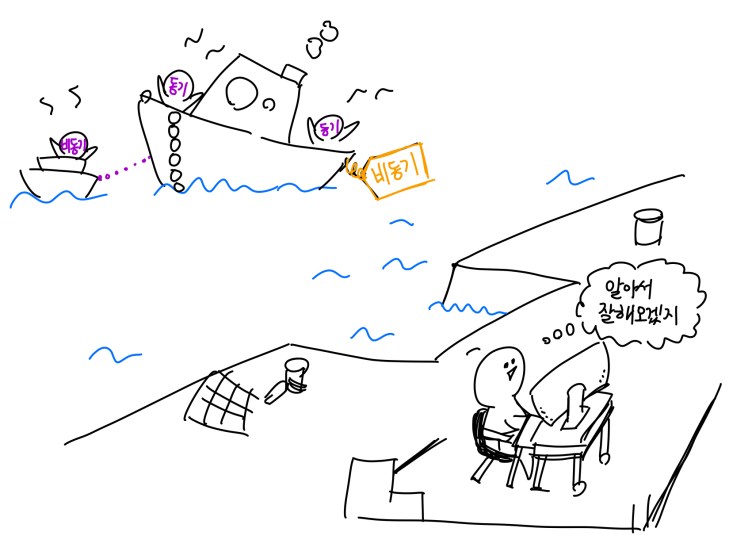 동기
동기
비동기
비동기
알아서
잘해오겠지